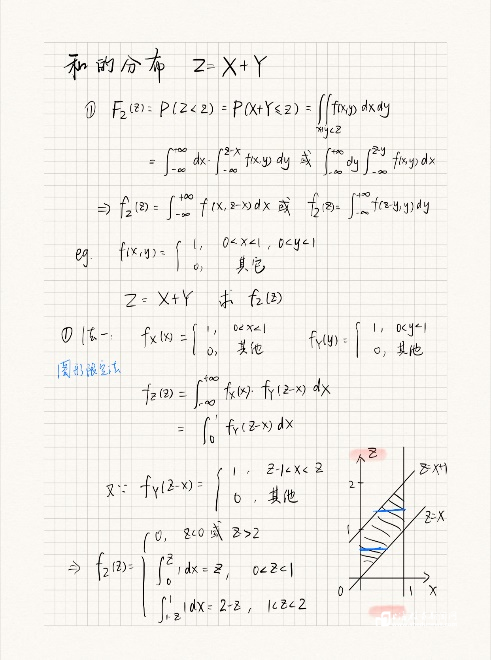 和的分布 Z=X+Y
① F_Z(z)=P(Z<z)=P(X+Y≤z)=∬_{x+y<z} f(x,y) dxdy
=∫_{-∞}^{+∞} dx·∫_{-∞}^{z-x} f(x,y) dy 或 ∫_{-∞}^{+∞} dy ∫_{-∞}^{z-y} f(x,y) dx
⇒ f_Z(z)=∫_{-∞}^{+∞} f(x,z-x) dx 或 f_Z(z)=∫_{-∞}^{+∞} f(z-y,y) dy
eg. f(x,y)={ 1, 0<x<1, 0<y<1
0, 其它
Z=X+Y 求 f_Z(z)
① 法一. f_X(x)={ 1, 0<x<1 f_Y(y)={ 1, 0<y<1
0, 其他 0, 其他
图形限定法
f_Z(z)=∫_{-∞}^{+∞} f_X(x)·f_Y(z-x) dx
=∫_0^1 f_Y(z-x) dx
又∵ f_Y(z-x)={ 1, z-1<x<z
0, 其他
⇒ f_Z(z)={ 0, z<0 或 z>2
∫_0^z 1dx=z, 0<z<1
∫_{1-z}^1 1dx=2-z, 1<z<2
z
z=x+1
2
z=x
1
0 1 x